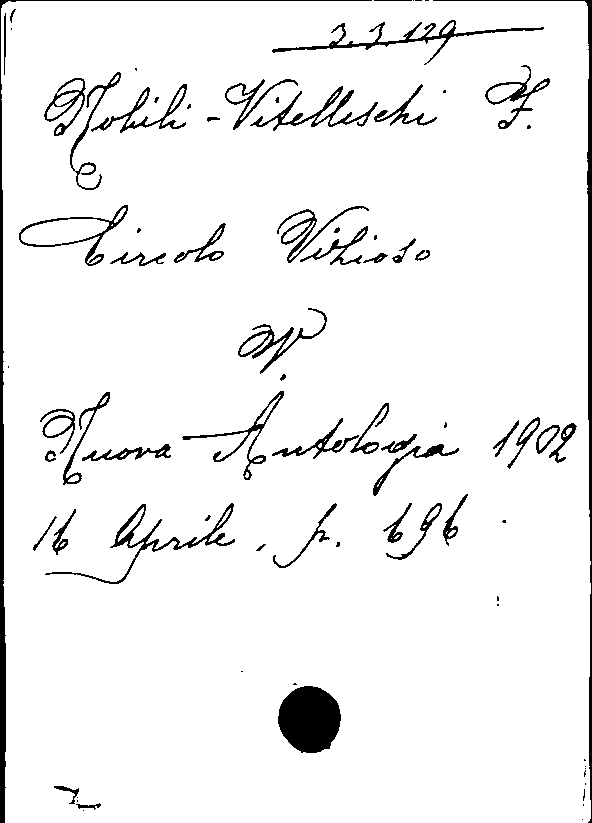 3.3.129
Nobili-Vitelleschi F.
Circolo Vizioso
Nuova Antologia 1902
16 Aprile, p. 696